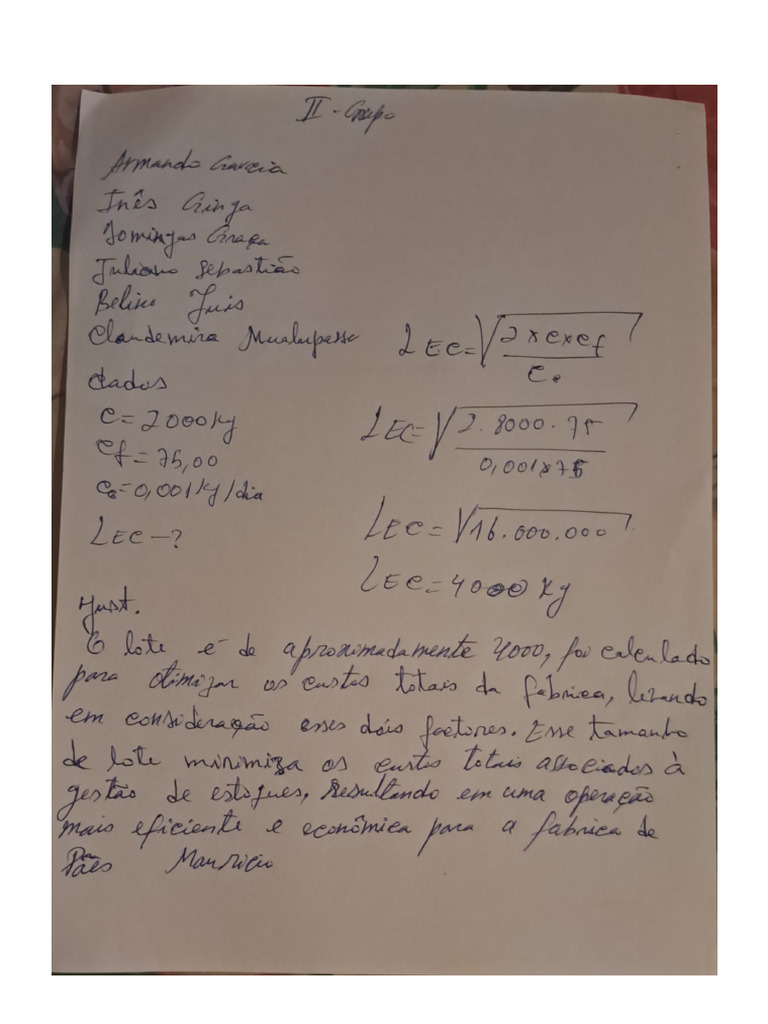 II - Grupo
Armando Garcia
Inês Ginga
Domingas Graça
Juliano Sebastião
Belino
Claudemira
LEC=√2×C×Cf
Ce
dados
C= 2000kg
Cf= 75,00
Ce=0,001kg/dia
LEC -?
LEC=√2.8000.75
0,001×75
LEC=√16.000.000
LEC=4000 kg
Just.
O lote é de aproximadamente 4000, foi calculado
para otimizar os custos totais da fabrica, levando
em consideração esses dois factores. Esse tamanho
de lote minimiza os custos totais associados à
gestão de estoques, resultando em uma operação
mais eficiente e econômica para a fabrica de
Pães Mauricio